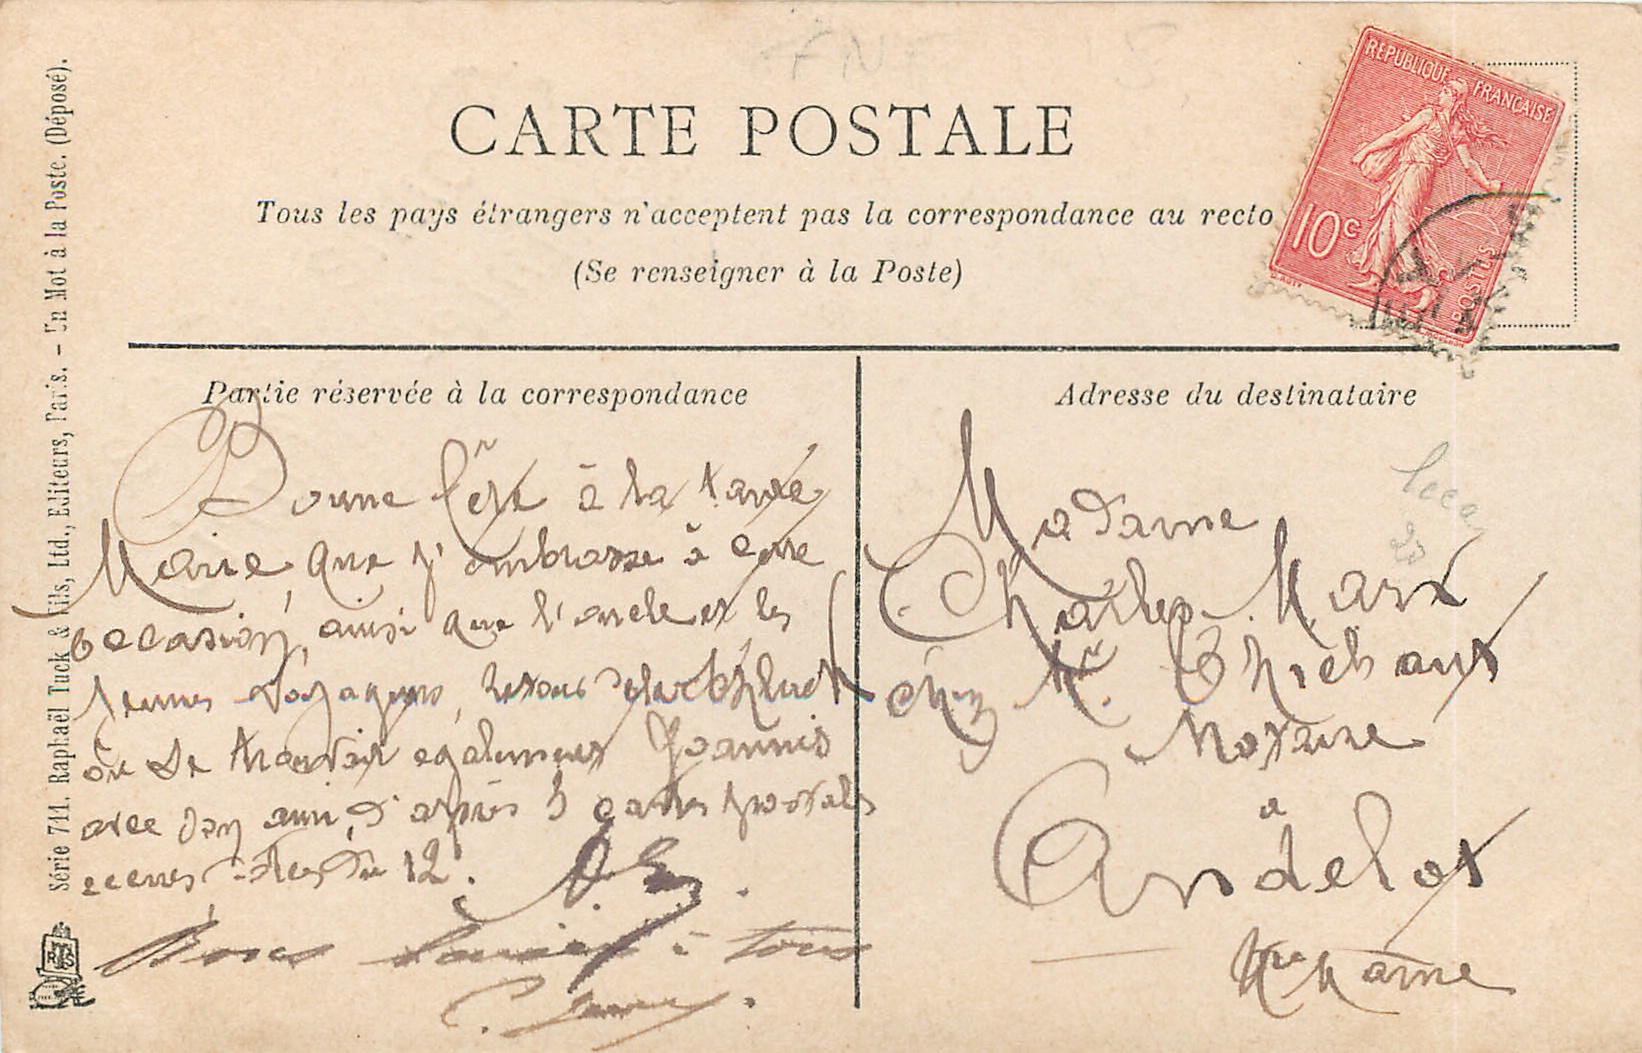 CARTE POSTALE
Tous les pays étrangers n'acceptent pas la correspondance au recto
(Se renseigner à la Poste)
REPUBLIQUE FRANÇAISE
10c
POSTES
Partie réservée à la correspondance
Bonne fête à la tante
Marie, que j'embrasse à cette
occasion, ainsi que l'oncle et les
jeunes voyageurs, retour
ou se trouvait également Joannis
avec son ami, d'après 3 cartes postales
reçues du 12.
Bons à tous
Adresse du destinataire
Madame
Charles Marx
chez Mr. Thiébaut
Notaire
à
Andelot
Hte Marne
Série 711. Raphaël Tuck & Fils, Ltd., Editeurs, Paris. - Un Mot à la Poste. (Déposé).